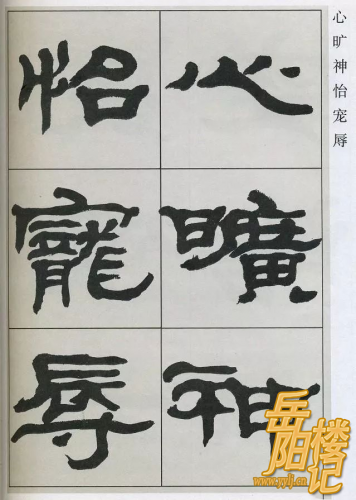 心旷神怡宠辱
心曠神
怡寵辱
岳阳楼记
www.yylj.cn